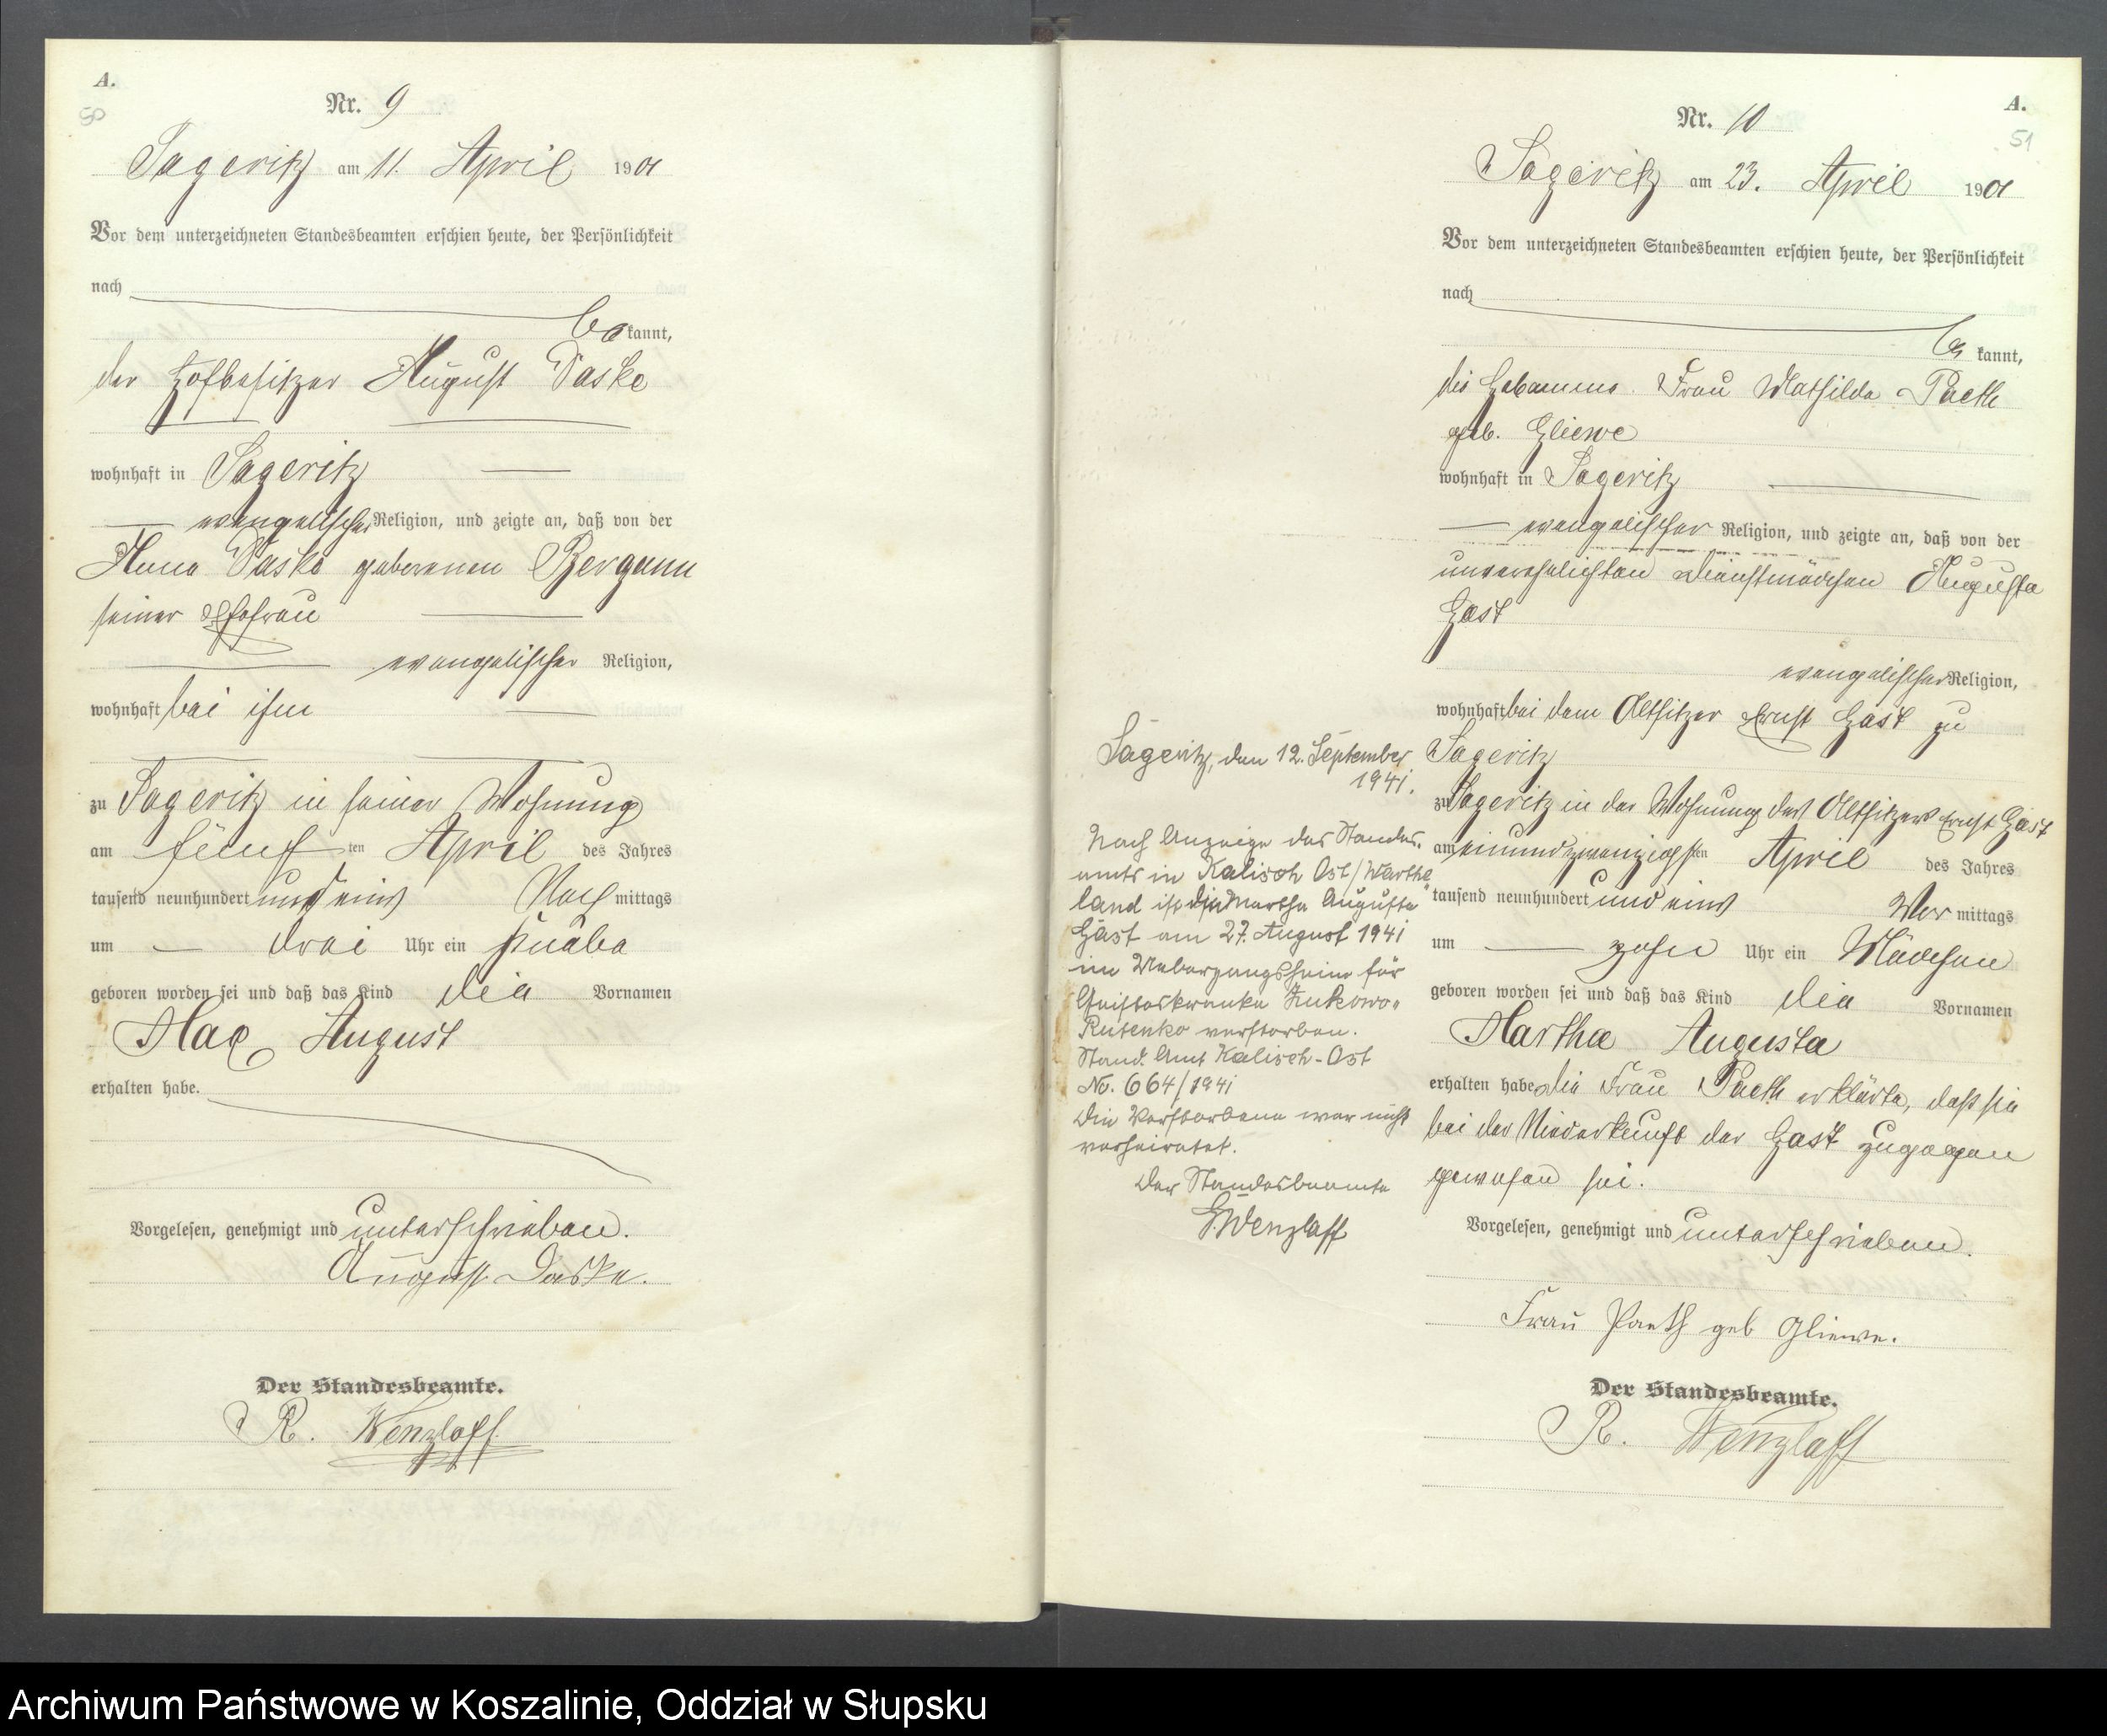 A.
50
Nr. 9
Sageritz am 11. April 1901
Vor dem unterzeichneten Standesbeamten erschien heute, der Persönlichkeit
nach
be kannt,
der Hofbesitzer August Paske
wohnhaft in Sageritz
evangelischer Religion, und zeigte an, daß von der
Paske geborenen Bergann
seiner Ehefrau
evangelischer Religion,
wohnhaft bei ihm
zu Sageritz in seiner Wohnung
am fünf ten April des Jahres
tausend neunhundert und eins Nach mittags
um drei Uhr ein Knabe
geboren worden sei und daß das Kind die Vornamen
Max August
erhalten habe.
Vorgelesen, genehmigt und unterschrieben.
August Paske.
Der Standesbeamte.
R. Wenzlaff
A.
51
Nr. 10
Sageritz am 23. April 1901
Vor dem unterzeichneten Standesbeamten erschien heute, der Persönlichkeit
nach
be kannt,
die Hebamme Frau Mathilde Paeth
geb. Gliewe
wohnhaft in Sageritz
evangelischer Religion, und zeigte an, daß von der
unverehelichten Dienstmädchen Auguste
Gast
evangelischer Religion,
wohnhaft bei dem Altsitzer Ernst Gast zu
Sageritz
zu Sageritz in der Wohnung des Altsitzers Ernst Gast
am einundzwanzigsten April des Jahres
tausend neunhundert und eins Vor mittags
um zehn Uhr ein Mädchen
geboren worden sei und daß das Kind die Vornamen
Martha Augusta
erhalten habe die Frau Paeth erklärte, daß sie
bei der Niederkunft der Gast zugegen
gewesen sei.
Vorgelesen, genehmigt und unterschrieben.
Frau Paeth geb Gliewe.
Der Standesbeamte.
R. Wenzlaff
Sageritz, den 12. September
1941.
Nach Anzeige des Standes-
amts in Kalisch Ost/Warthe
land ist die Martha Auguste
Gast am 27. August 1941
im Uebergangsheim für
Geisteskranke
verstorben.
Stand. Amt Kalisch-Ost
No. 664/1941
Die Verstorbene war nicht
verheiratet.
Der Standesbeamte
G. Wenzlaff
Archiwum Państwowe w Koszalinie, Oddział w Słupsku